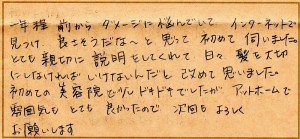 二年程前からダメージに悩んでいて インターネットで
見つけ 良さそうだな〜と思って初めて伺いました。
とても親切に説明をしてくれて 日々髪を大切
にしなければいけないんだと改めて思いました。
初めての美容院で少しドキドキでしたが アットホームで
雰囲気もとても良かったので 次回もよろしく
お願いします